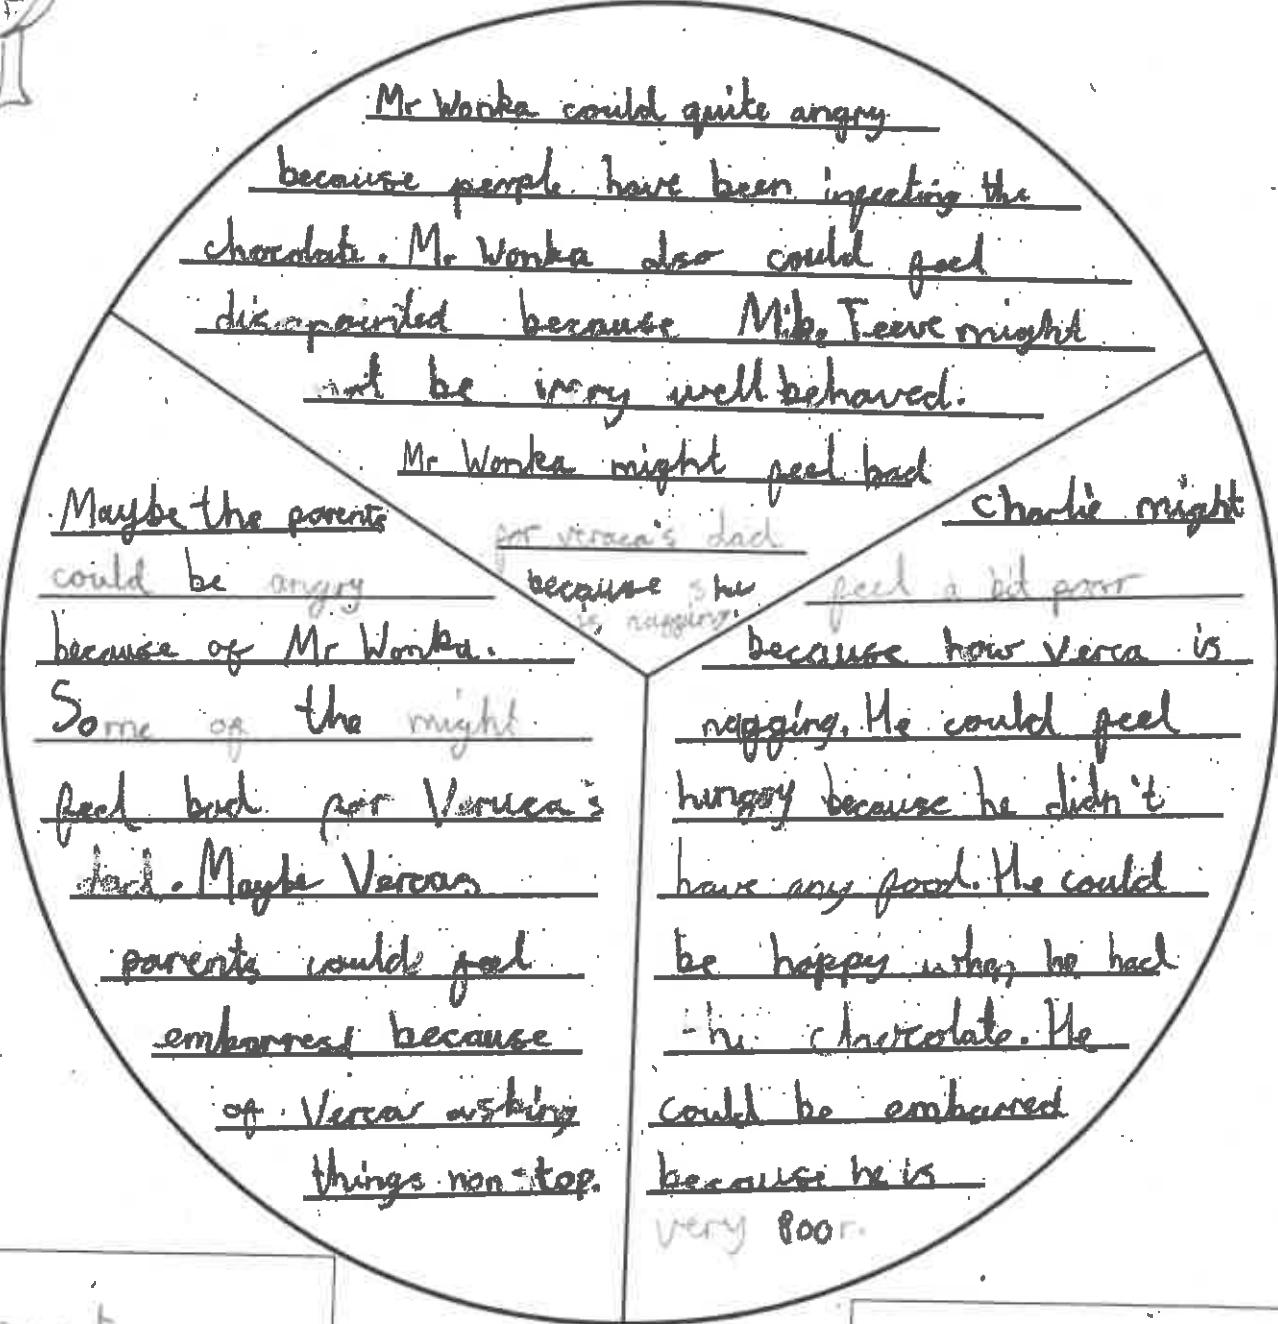 Mr Wonka could quite angry
because people have been injecting the
chocolate. Mr Wonka also could feel
disappointed because Mike Teeve might
not be very well behaved.
Mr Wonka might feel bad
for veraca's dad
because she
is nagging.
Maybe the parents
could be angry
because of Mr Wonka.
Some of the might
feel bad for Veruca's
dad. Maybe Vercas
parents would feel
embarresd because
of Verca asking
things non-stop.
Charlie might
feel a bit poor
because how verca is
nagging. He could feel
hungry because he didn't
have any food. He could
be happy when he had
the chocolate. He
could be embarred
because he is
very poor.